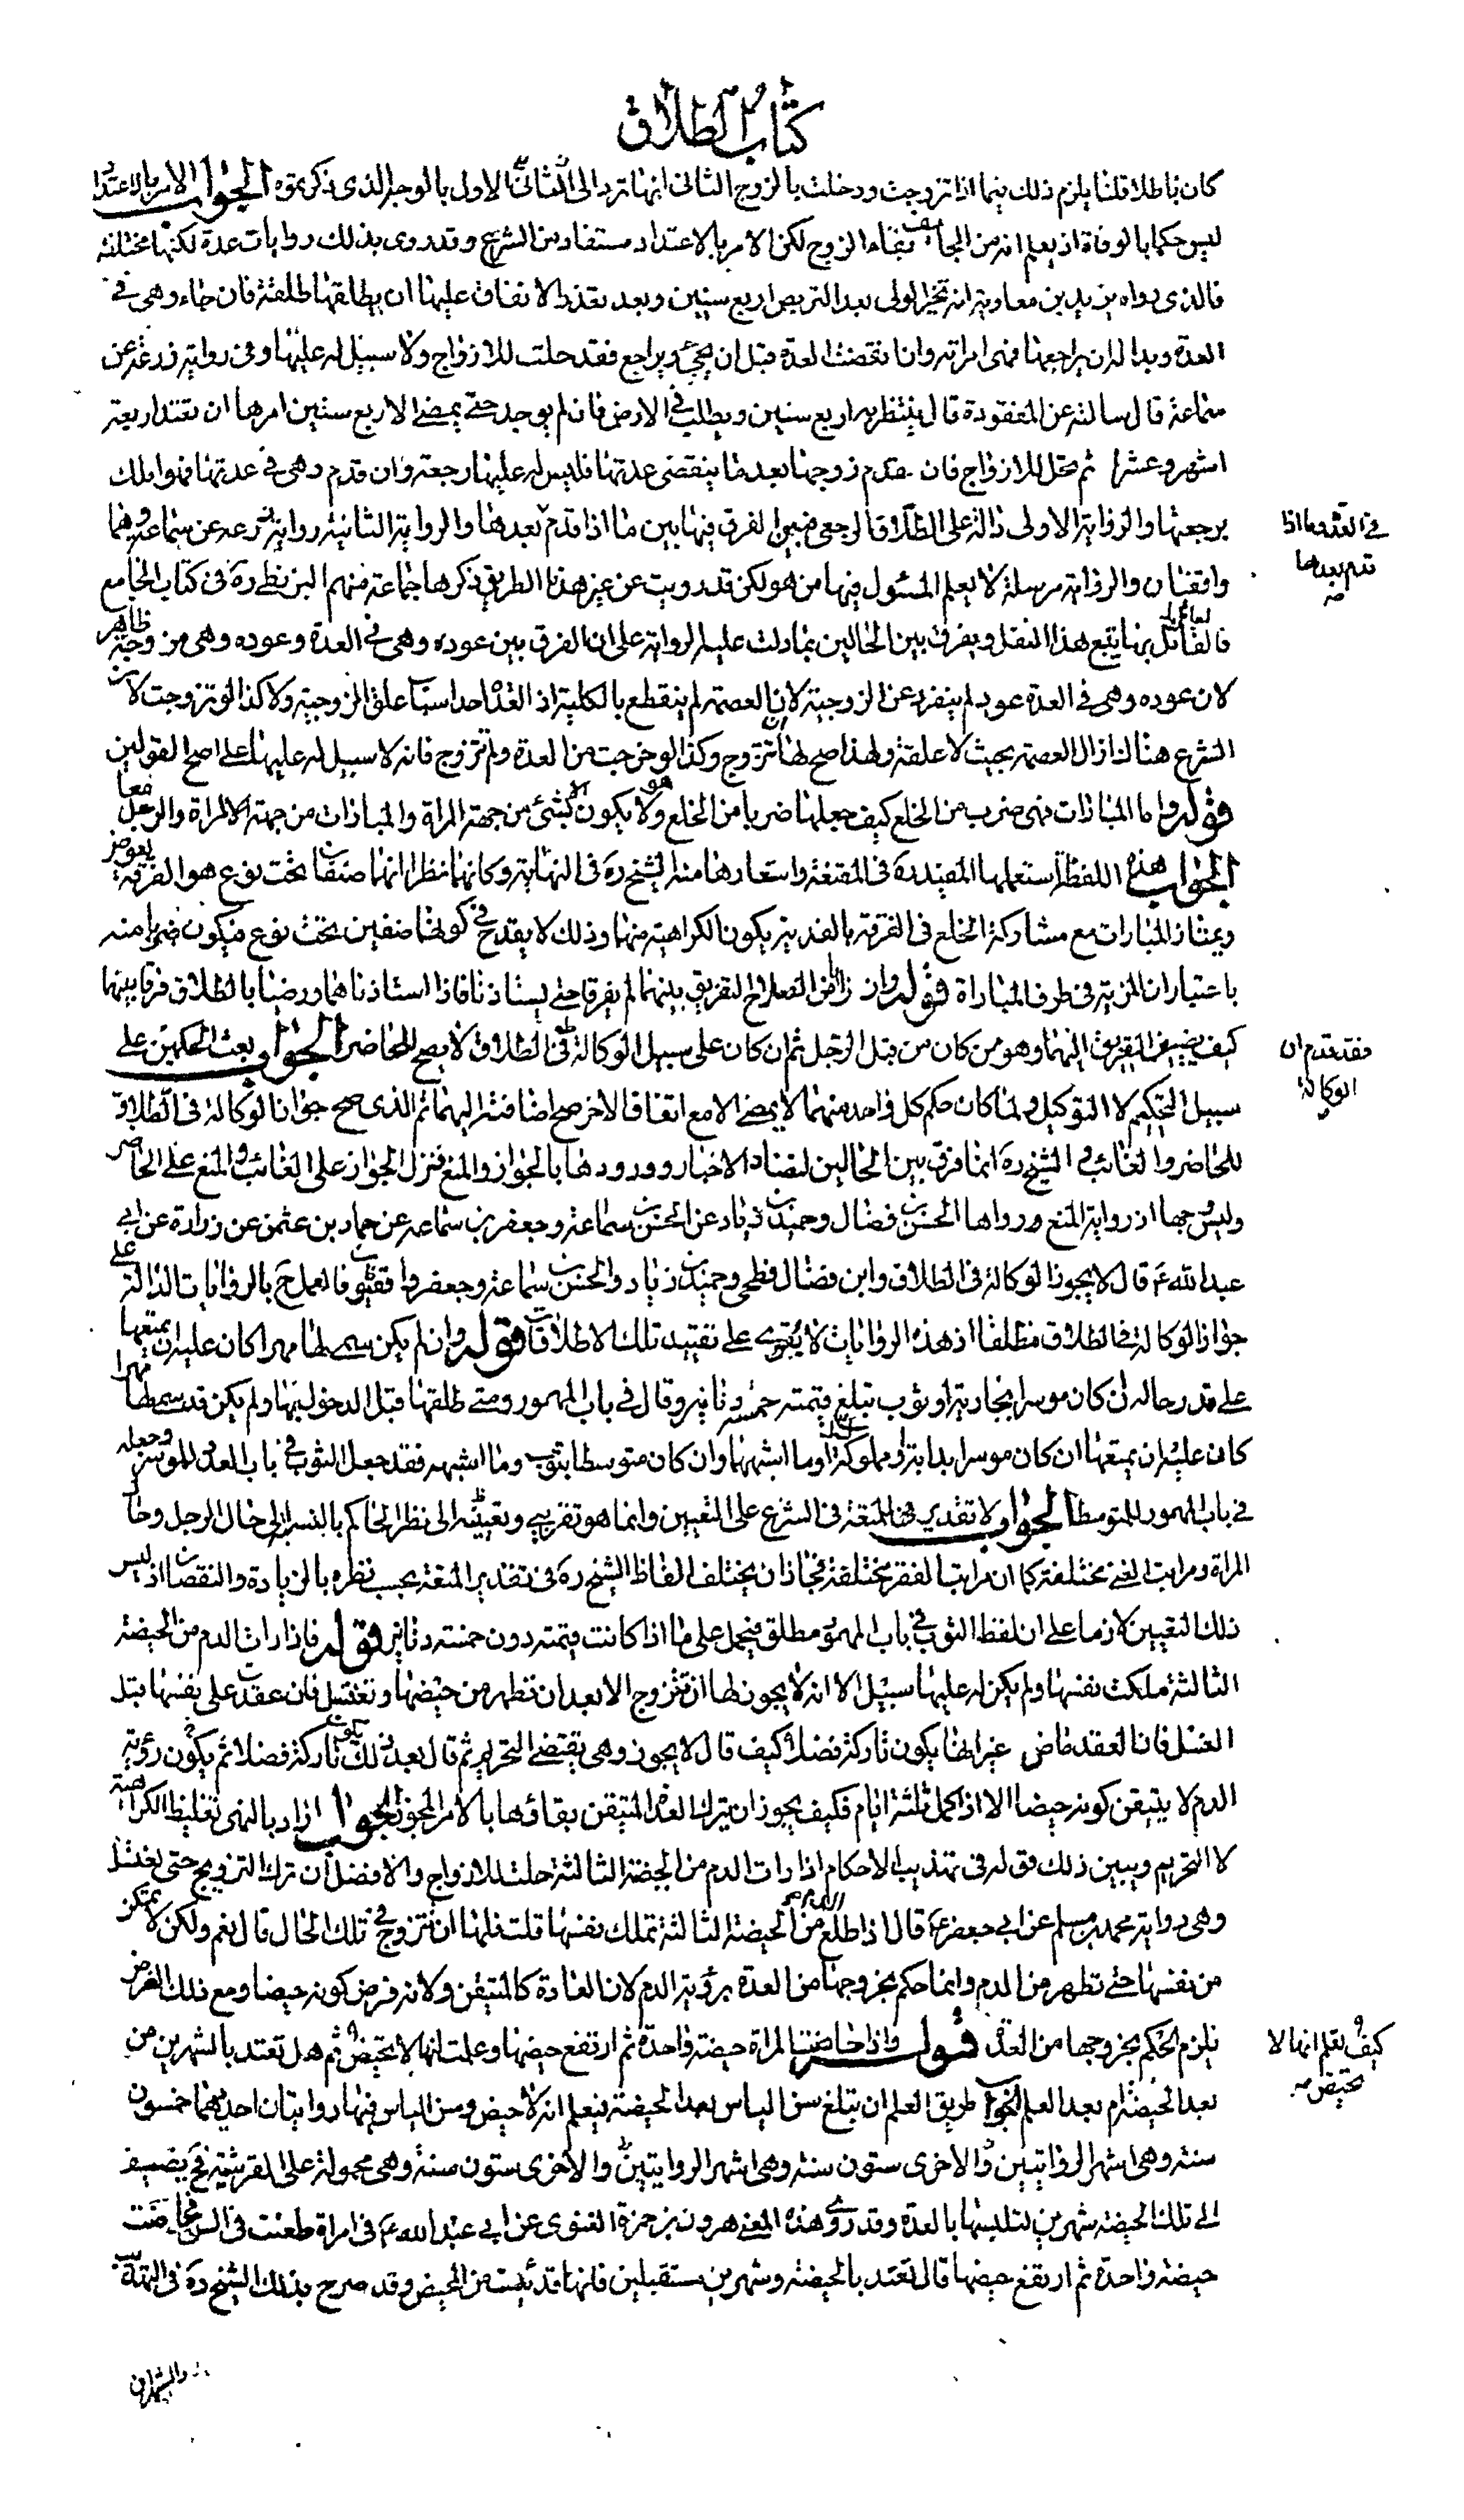 كتاب الطلاق
كان باطلا قلنا يلزم ذلك فيما اذا تزوجت ودخلت بالزوج الثاني انها ترد الى الاول بالوجه الذي ذكرتموه الجواب الامر بالاعتداد
ليس حكما بالوفاة اذ يعلم انه من الجايز بقاء الزوج لكن الامر بالاعتداد مستفاد من الشرع وقد روى بذلك روايات عدة لكنها مختلفة
فالذي رواه بريد بن معاوية انه تخير الولى بعد التربص اربع سنين وبعد تعذر الانفاق عليها ان يطلقها طلقة فان جاء وهى في
العدة وبدا له ان يراجعها فهى امراته وان انقضت العدة قبل ان يجئ ويراجع فقد حلت للازواج ولا سبيل له عليها وفى رواية زرعة عن
سماعة قال سالته عن المفقودة قال ينتظر به اربع سنين ويطلب في الارض فان لم يوجد حتى يمضى الاربع سنين امرها ان تعتد اربعة
اشهر وعشرا ثم تحل للازواج فان قدم زوجها بعد ما ينقضى عدتها فليس له عليها رجعة وان قدم وهى في عدتها فهو املك
برجعتها والرواية الاولى دالة على الطلاق الرجعى فيبين الفرق فيها بين ما اذا قدم بعدها والرواية الثانية رواية زرعة عن سماعة وهما
في العدة وما اذا
قدم بعدها
صح
واقفيان والرواية مرسلة لا يعلم المسئول فيها من هو لكن قد رويت عن غير هذا الطريق ذكرها جماعة منهم البزنطى ره في كتاب الجامع
فالقائل بها يتبع هذا النقل ويفرق بين الحالين بما دلت عليه الرواية على ان الفرق بين عوده وهى في العدة وعوده وهى من زوجة ظاهر
لان عوده وهى في العدة عود لم ينفرد عن الزوجية لان العصمة لم ينقطع بالكلية اذ العدة احد اسباب علق الزوجية ولا كذا لو تزوجت لان
الشرع هنا ازال العصمة بحيث لا علقة ولهذا صح لها ان تتزوج وكذا لو خرجت من العدة ولم تتزوج فانه لا سبيل له عليها على اصح القولين
قوله واما المبارات فهى ضرب من الخلع كيف جعلها ضربا من الخلع وهو لا يكون الا بشئ من جهة المراة والمبارات من جهة المراة والرجل معا
الجواب هذه اللفظة استعملها المفيد ره في المقنعة واستعارها منه الشيخ ره في النهاية وكانهما نظرا انهما صنفان تحت نوع هو الفرقة بعوض
ويمتاز المبارات مع مشاركة الخلع في الفرقة بالفدية بكون الكراهية منهما وذلك لا يقدح في كونهما صنفين تحت نوع فيكون ضربا منه
باعتبار ان المزية في طرف المباراة قوله وان رايا من الصلاح التفريق بينهما لم يفرقا حتى يستاذنا فاذا استاذناهما ورضيا بالطلاق فرقا بينهما
كيف يضيف التفريق اليهما وهو من كان من قبل الرجل ثم ان كان على سبيل الوكالة في الطلاق لا يصح للحاضر الجواب بعث الحكمين على
فقد تقدم ان
الوكالة
سبيل التحكيم لا التوكيل ولما كان حكم كل واحد منهما لا يمضى الا مع اتفاق الاخر صح اضافته اليهما ثم الذي صح جواز الوكالة في الطلاق
للحاضر والغائب والشيخ ره انما فرق بين الحالين لتضاد الاخبار وورودها بالجواز والمنع فنزل الجواز على الغائب والمنع على الحاضر
وليس وجها اذ رواية المنع ورواها الحسن بن فضال وحميد بن زياد عن الحسن بن سماعة وجعفر بن سماعة عن حماد بن عثمن عن زرارة عن ابى
عبد الله ع قال لا يجوز الوكالة في الطلاق وابن فضال فطحى وحميد بن زياد والحسن بن سماعة وجعفر واقفيون فالعمل ح بالروايات الدالة على
جواز الوكالة في الطلاق مطلقا اذ هذه الروايات لا يقوى على تقييد تلك الاطلاقات قوله وان لم يكن سمى لها مهرا كان عليه ان يمتعها
على قدر حاله ان كان موسرا بجارية او ثوب تبلغ قيمته خمسة دنانير وقال في باب المهور ومتى طلقها قبل الدخول بها ولم يكن قد سمى لها مهرا
كان عليه ان يمتعها ان كان موسرا بدابة او مملوكة او ما اشبهها وان كان متوسطا بثوب وما اشبهه فقد جعل الثوب في باب العدد للموسر وجعله
في باب المهور للمتوسط الجواب لا تقدير في المتعة في الشرع على التعيين وانما هو تقريب وتعيينه الى نظر الحاكم بالنسبة الى حال الرجل وحال
المراة ومراتب الغنى مختلفة كما ان مراتب الفقر مختلفة فجاز ان يختلف الفاظ الشيخ ره في تقدير المتعة بحسب نظره بالزيادة والنقصان اذ ليس
ذلك التعيين لازما على ان لفظ الثوب في باب المهور مطلق فيحمل على ما اذا كانت قيمته دون خمسة دنانير قوله فاذا رات الدم من الحيضة
الثالثة ملكت نفسها ولم يكن له عليها سبيل الا انه لا يجوز لها ان تتزوج الا بعد ان تطهر من حيضها وتغتسل فان عقدت على نفسها قبل
الغسل فان العقد ماض غير انها يكون تاركة فضلا كيف قال لا يجوز وهى يقتضى التحريم ثم قال بعد ذلك يكون تاركة فضلا ثم يكون رؤية
الدم لا يتيقن كونه حيضا الا اذا كمل ثلثة ايام فكيف يجوز ان يترك العدة المتيقن بقاؤها بالامر المجوز الجواب اراد بالنهى تغليظ الكراهية
لا التحريم ويبين ذلك قوله في تهذيب الاحكام اذا رات الدم من الحيضة الثالثة حلت للازواج والافضل ان تترك التزويج حتى تغتسل
وهى رواية محمد بن مسلم عن ابى جعفر ع قال اذا طلع الدم من الحيضة الثالثة تملك نفسها قلت فلها ان تتزوج في تلك الحال قال نعم ولكن لا تمكن
من نفسها حتى تطهر من الدم وانما حكم بخروجها من العدة برؤية الدم لان العادة كالمتيقن ولانه فرض كونه حيضا ومع ذلك الفرض
يلزم الحكم بخروجها من العدة قوله واذا حاضت المراة حيضة واحدة ثم ارتفع حيضها وعلمت انها لا تحيض ثم هل تعتد بالشهرين من
كيف تعلم انها لا
تحيض صح
بعد الحيضة ام بعد العلم الجواب طريق العلم ان تبلغ سن الياس بعد الحيضة فيعلم انه لا حيض وسن الياس فيها روايتان احديهما خمسون
سنة وهى اشهر الروايتين والاخرى ستون سنة وهى اشهر الروايتين والاخرى ستون سنة وهى محمولة على القرشية فح يضيف
الى تلك الحيضة شهرين لتلبسها بالعدة وقد روى هذه المعنى هرون بن حمزة الغنوى عن ابى عبد الله ع في امراة طعنت في السن فحاضت
حيضة واحدة ثم ارتفع حيضها قال تعتد بالحيضة وشهرين مستقبلين فانها قد يئست من المحيض وقد صرح بذلك الشيخ ره في التهذيب
والشهران